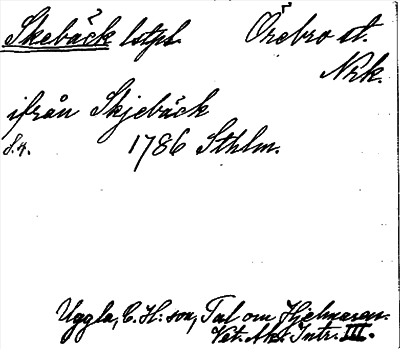 Skebäck lstpl. Örebro st.
Nrk.
ifrån Skjebäck
s. 4. 1786 Sthlm.
Uggla, C. H:son, Tal om Hjelmaren.
Vet. Akt. Intr. III.